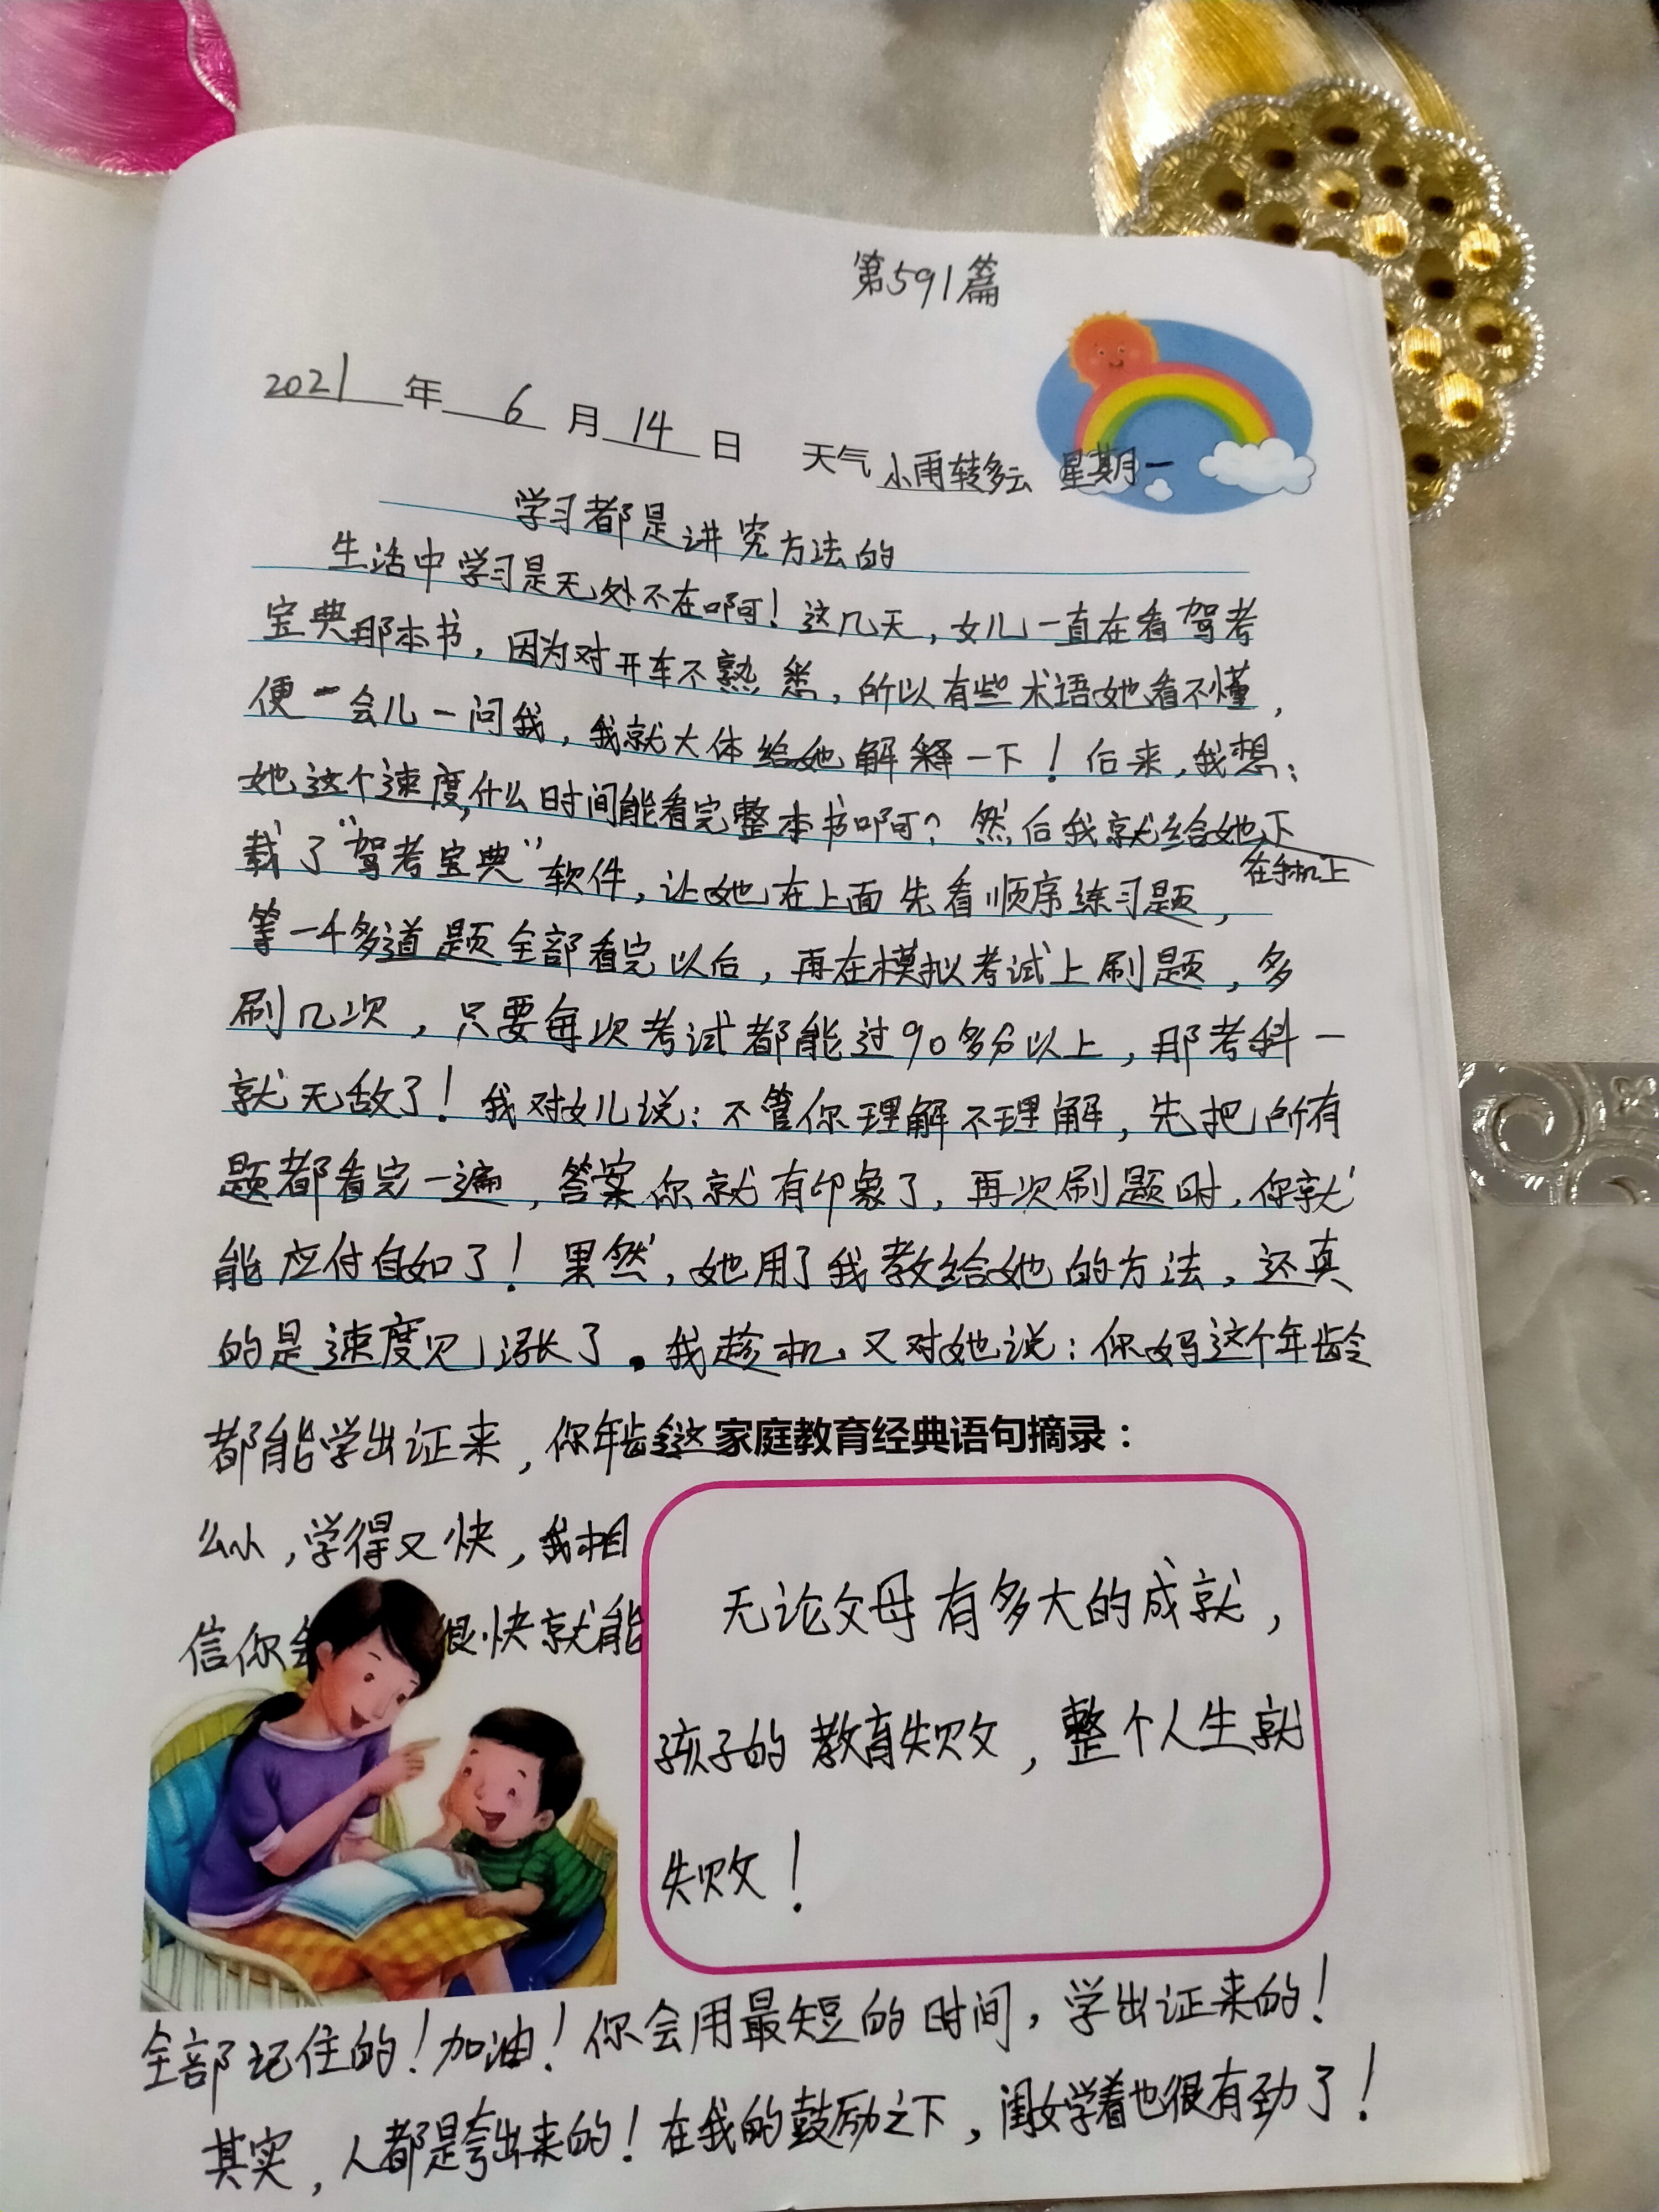 第591篇
2021年6月14日 天气小雨转多云 星期一
学习都是讲究方法的
生活中学习是无处不在啊！这几天，女儿一直在看驾考
宝典那本书，因为对开车不熟悉，所以有些术语她看不懂，
便一会儿一问我，我就大体给她解释一下！后来，我想：
她这个速度，什么时间能看完整本书啊？然后我就给她下
在手机上
载了“驾考宝典”软件，让她在上面先看顺序练习题，
等一千多道题全部看完以后，再在模拟考试上刷题，多
刷几次，只要每次考试都能过90多分以上，那考科一
就无敌了！我对女儿说：不管你理解不理解，先把所有
题都看完一遍，答案你就有印象了，再次刷题时，你就
能应付自如了！果然，她用了我教给她的方法，还真
的是速度见涨了。我趁机又对她说：你妈这个年龄
都能学出证来，你年龄这
么小，学得又快，我相
信你会很快就能
家庭教育经典语句摘录：
无论父母有多大的成就，
孩子的教育失败，整个人生就
失败！
全部记住的！加油！你会用最短的时间，学出证来的！
其实，人都是夸出来的！在我的鼓励之下，闺女学着也很有劲了！